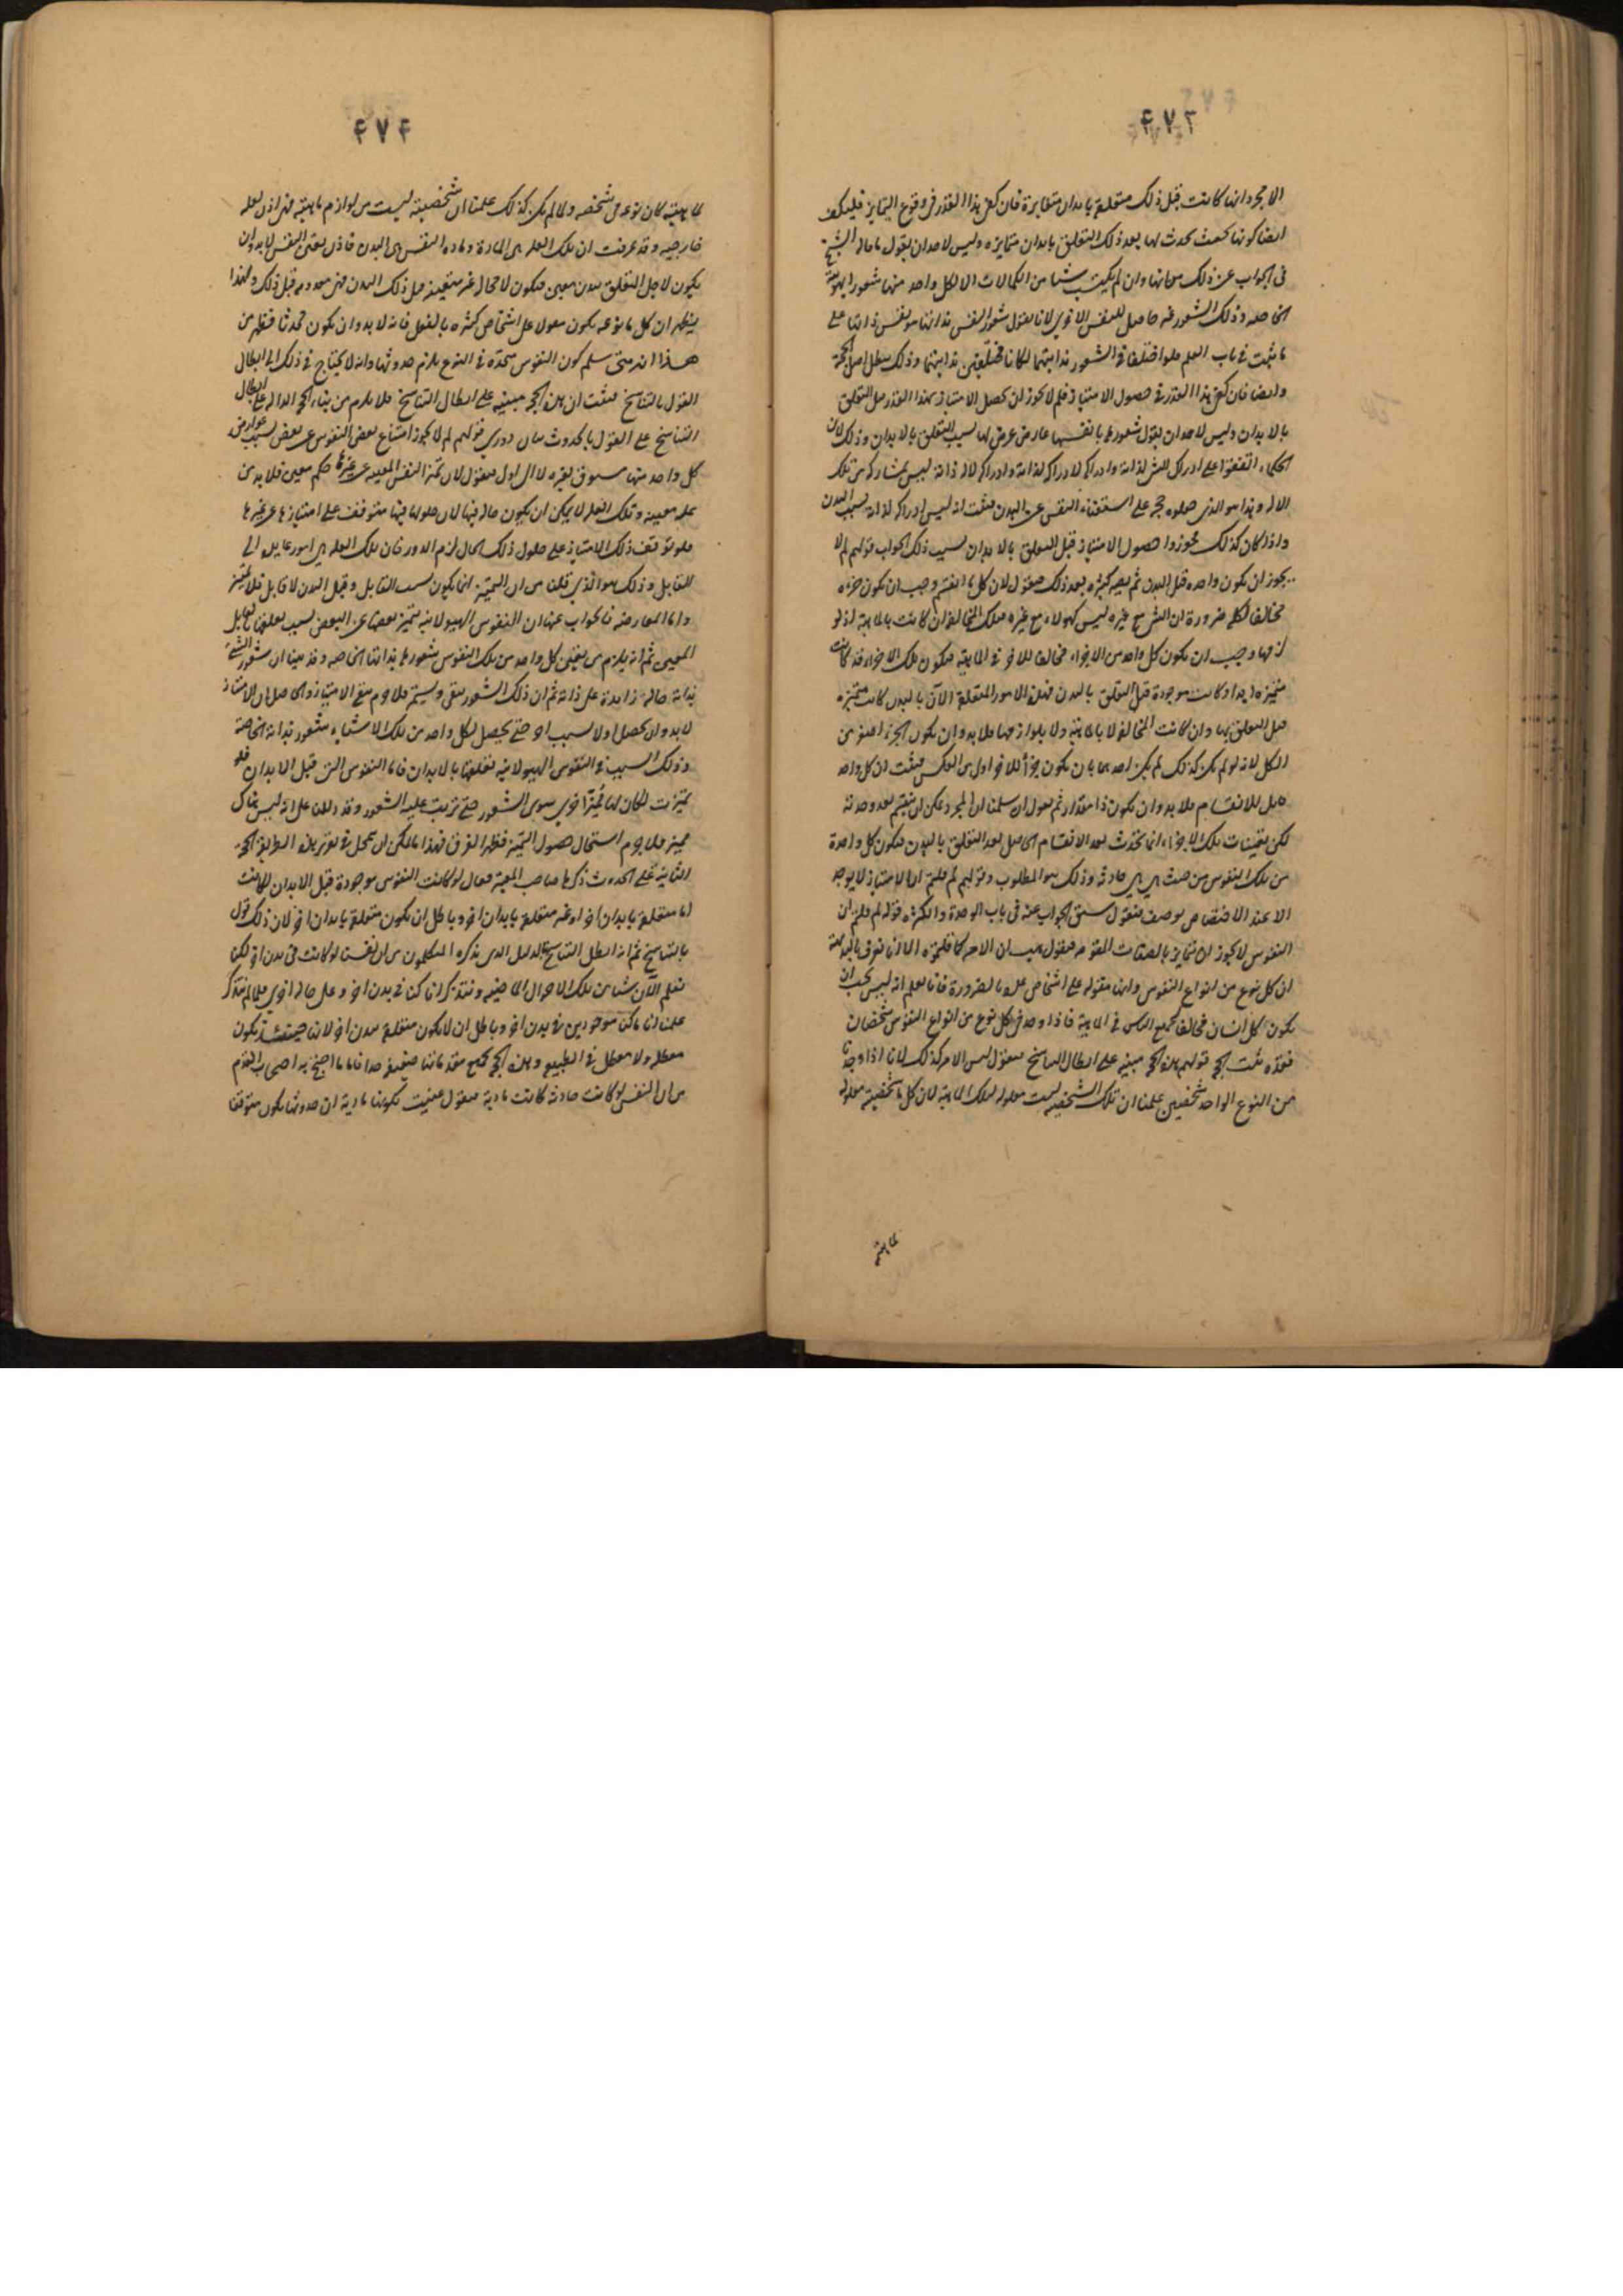 ۴۷۳
الا مجرد انها كانت قبل ذلك متعلقة بابدان متغايرة فان كفى هذا القدر فى وقوع التمايز فليكف
ايضا كونها بحيث يحدث لها بعد ذلك التعلق بابدان متمايزه وليس لاحد ان يقول ما قاله الشيخ
فى الجواب عن ذلك من انها وان لم يكتسب شيئا من الكمالات الا لكل واحد منها شعورا بهويته
الخاصه وذلك الشعور غير حاصل للنفس الاخرى لانا نقول شعور النفس بذاتها هو نفس ذاتها على
ما ثبت فى باب العلم فلو اختلفا فى الشعور بذاتيهما لكانا مختلفين بذاتيهما وذلك يبطل اصل الحجة
وايضا فان كفى هذا القدر فى حصول الامتياز فلم لا يجوز ان يحصل الامتياز بهذا القدر قبل التعلق
بالابدان وليس لاحد ان يقول شعورها بانفسها عارض عرض لها بسبب التعلق بالابدان وذلك لان
الحكماء اتفقوا على ادراك الشئ لذاته وادراكه لادراكه لذاته وادراكه لاله ذاته ليس بمشاركة من تلك
الاله وهذا هو الذى جعلوه حجة على استغناء النفس عن البدن فثبت انه ليس ادراكه لذاته بسبب البدن
واذا كان كذلك فجوزوا حصول الامتياز قبل التعلق بالابدان بسبب ذلك الجواب قولهم لم لا
يجوز ان يكون واحده قبل البدن ثم يصير كثيره بعد ذلك فنقول لان كل ما انقسم وجب ان يكون جزءه
مخالفا لكله ضرورة ان الشئ مع غيره ليس كهو لا مع غيره فتلك المخالفة ان كانت بالماهية او لو
ازمها وجب ان يكون كل واحد من الاجزاء مخالفا للاخر فى الماهية فيكون تلك الاجزاء قد كانت
متميزه ابدا وكانت موجودة قبل التعلق بالبدن فهذه الامور المتعلقة الآن بالبدن كانت متميزه
قبل التعلق بها وان كانت المخالفة لا بالماهية ولا بلوازمها فلا بد وان يكون الجزء اصغر من
الكل لانه لو لم يكن كذلك لم يكن احدهما بان يكون جزأ للاخر اولى من العكس فثبت ان كل واحد
قابل للانقسام فلا بد وان يكون ذا مقدار ثم نقول ان سلمنا ان المجرد يمكن ان ينقسم بعد وحدته
لكن تعينات تلك الاجزاء انما تحدث بعد الانقسام الحاصل بعد التعلق بالبدن فيكون كل واحدة
من تلك النفوس من حيث هى هى حادثة وذلك هو المطلوب وقولهم لم قلتم ان الامتياز لا يوجد
الا عند الاختصاص بوصف فنقول سبق الجواب عنه فى باب الوحدة والكثره قوله لم قلتم ان
النفوس لا يجوز ان تتمايز بالصفات المقومه فنقول هب ان الامر كما قلتموه الا انا نعرف بالبديهة
ان كل نوع من انواع النفوس وانها مقوله على اشخاص عده بالضرورة فانا نعلم انه ليس يجب ان
يكون كل انسان مخالفا لجميع الناس فى الماهية فاذا وجد فى كل نوع من انواع النفوس شخصان
فقد ثبت الحجه قولهم هذه الحجه مبنيه على ابطال التناسخ فنقول ليس الامر كذلك لانا اذا وجدنا
من النوع الواحد شخصين علمنا ان تلك الشخصيه ليست معلوله لتلك الماهية لان كل ما شخصيته معلوله
لماهيته
۴۷۴
لماهيته كان نوعه فى شخصه ولما لم يكن كذلك علمنا ان شخصيته ليست من لوازم ماهيته فهى اذن لعله
خارجيه وقد عرفت ان تلك العله هى المادة ومادة النفس هى البدن فاذن تعين النفس لا بد وان
يكون لاجل التعلق ببدن معين فيكون لا محاله غير متعينة قبل ذلك البدن فهى معدومه قبل ذلك وبهذا
يظهر ان كل ما نوعه يكون مقولا على اشخاص كثيره بالفعل فانه لا بد وان يكون محدثا فظهر من
هذا انه متى سلم كون النفوس متحده فى النوع يلزم حدوثها وانه لا يحتاج فى ذلك الى ابطال
القول بالتناسخ فثبت ان هذه الحجه مبنيه على ابطال التناسخ فلا يلزم من بناء الحجه الداله على ابطال
التناسخ على القول بالحدوث بيان دورى قولهم لم لا يجوز امتناع بعض النفوس عن بعض بسبب عوارض
كل واحد منها مسبوق بغيره لا الى اول فنقول لان تميز النفس المعينه عن غيرها حكم معين فلا بد من
عله معينه وتلك العله لا يمكن ان يكون حاله فيها لان حلولها فيها متوقف على امتيازها عن غيرها
فلو توقف ذلك الامتياز على حلول ذلك الحال لزم الدور فان تلك العله هى امور عايده الى
القابل وذلك هو الذى قلنا من ان التميز انما يكون بسبب القابل وقبل البدن لا قابل فلا تميز
واما المعارضة فالجواب عنها ان النفوس الهيولانيه تتميز بعضها عن البعض بسبب تعلقها بالقابل
المعين ثم انه يلزم من تعين كل واحد من تلك النفوس شعورها بذاتها الخاصه وقد بينا ان شعور الشئ
بذاته حالة زايدة على ذاته ثم ان ذلك الشعور يبقى ويستمر فلا جرم يبقى الامتياز والحاصل ان الامتياز
لا بد وان يحصل اولا بسبب اخر حتى يحصل لكل واحد من تلك الاشياء شعور بذاته الخاصه
وذلك السبب فى النفوس الهيولانيه تعلقها بالابدان فاما النفوس التى قبل الابدان فلو
تميزت لكان لها مميزا اخرى سوى الشعور حتى يترتب عليه الشعور وقد دللنا على انه ليس هناك
مميز فلا جرم استحال حصول التميز فظهر الفرق فهذا ما يمكن ان يتمحل فى تقرير هذه الطريقة الحجة
الثانية على الحدوث ذكرها صاحب المعتبر فقال لو كانت النفوس موجودة قبل الابدان لكانت
اما متعلقة بابدان اخر او غير متعلقة بابدان اخر وباطل ان يكون متعلقة بابدان اخر لان ذلك قول
بالتناسخ ثم انه ابطل التناسخ بالدليل الذى يذكره المتكلمون من ان انفسنا لو كانت فى بدن اخر لكنا
نعلم الآن شيئا من تلك الاحوال الماضيه ونتذكر انا كنا فى بدن اخر وعلى حاله اخرى فلما لم نتذكر
علمنا انا ما كنا موجودين فى بدن اخر وباطل ان لا يكون متعلقة ببدن اخر لانها حينئذ يكون
معطله ولا معطل فى الطبيعه وهذه الحجه بجميع مقدماتها ضعيفة جدا فاما ما احتج به اصحاب القدم
من ان النفس لو كانت حادثة كانت مادية فنقول عنيت بكونها مادية ان حدوثها يكون متوقفا